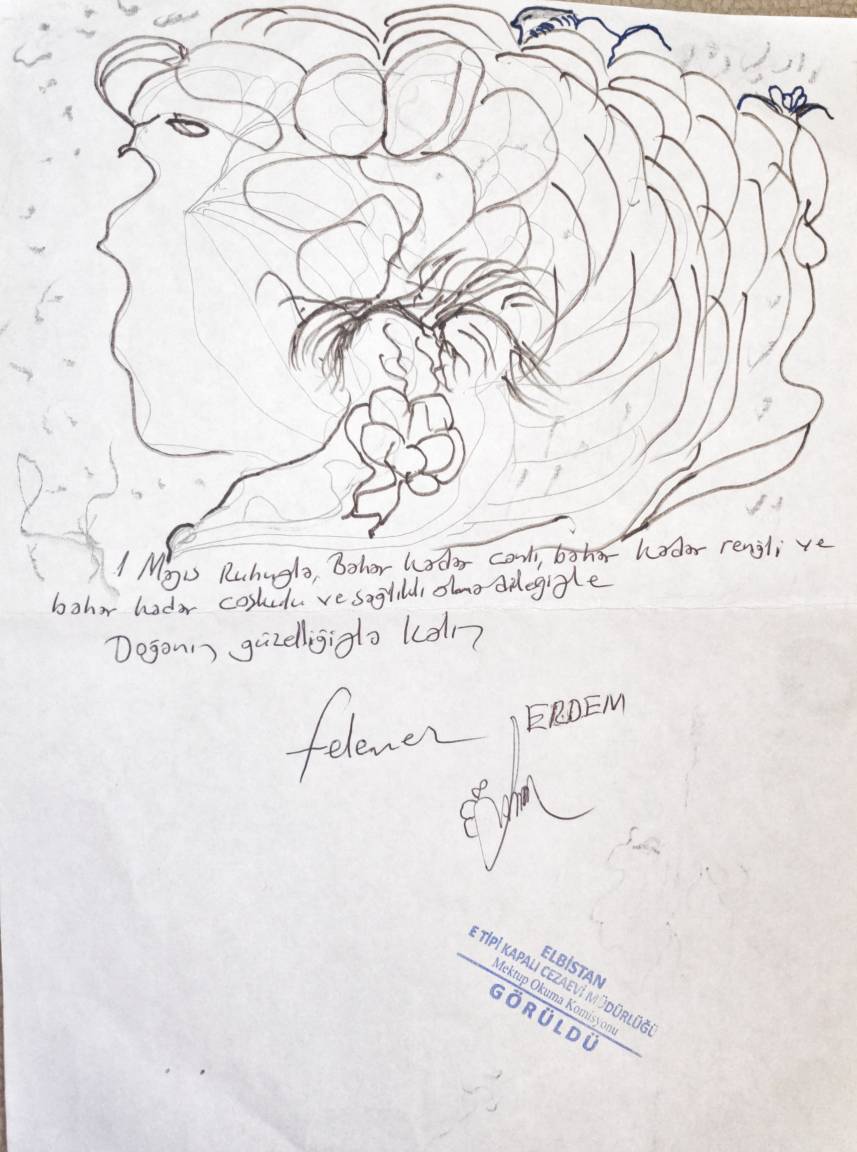 1 Mayıs Ruhuyla, Bahar kadar canlı, bahar kadar renkli ve
bahar kadar coşkulu ve sağlıklı olma dileğiyle
Doğanın güzelliğiyle kalın
ERDEM
ELBİSTAN
E TİPİ KAPALI CEZAEVİ MÜDÜRLÜĞÜ
Mektup Okuma Komisyonu
GÖRÜLDÜ